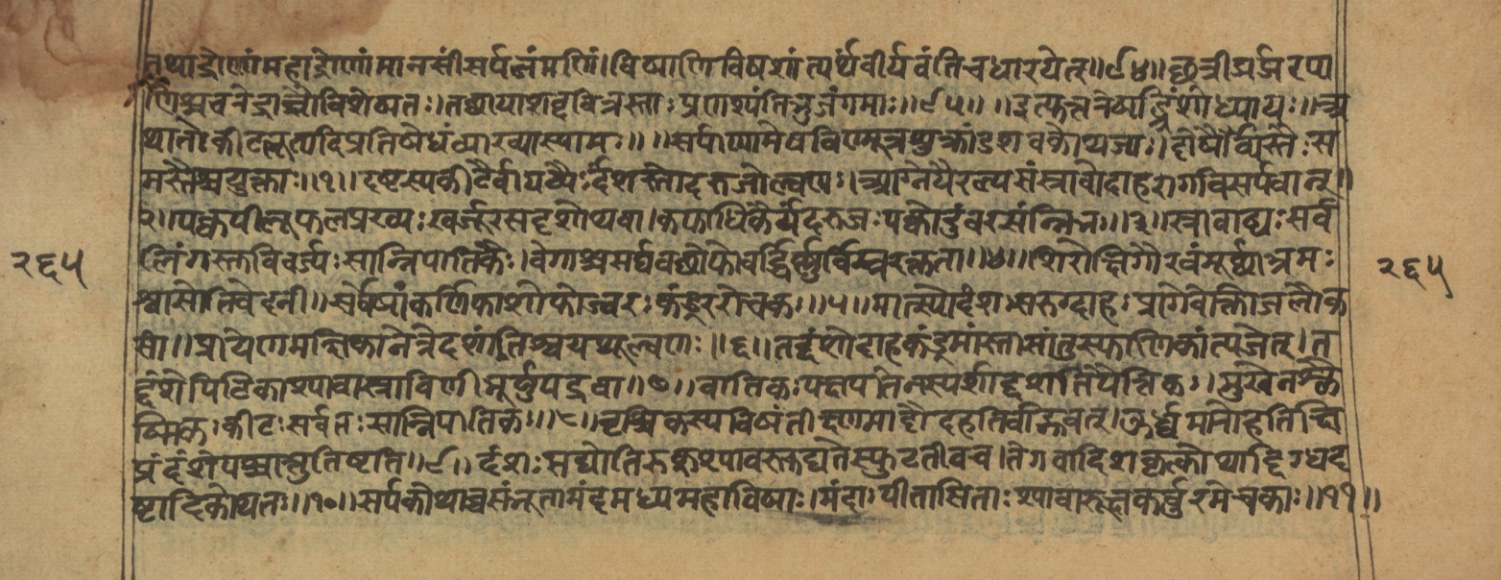 तथा द्रोणां महाद्रोणां मानसीं सर्पजं मणिं। विषाणि विषशांत्यर्थं वीर्यवंति च धारयेत्॥९४॥ छत्री झर्झरपा
णिश्च चरेद्रात्रौ विशेषतः। तछायाशब्दवित्रस्ताः प्रणश्यंति भुजंगमाः॥९५॥ ॥इत्युत्तरे षट्त्रिंशोध्यायः॥ अ
थातो कीटलूत्यदि प्रतिषेधं व्याख्यास्यामः॥ ॥सर्पाणामेव विण्मूत्रशुक्रांडशवकोथजाः। दोषैर्व्यस्तैः स
मस्तैश्च युक्ताः॥१॥ दष्टस्य कीटैर्वायव्यैर्दंशस्तोदरुजोल्वणः। आग्नेयैरल्पसंस्रावो दाहरागविसर्पवान्॥
२॥ पक्वपीलूफलप्रख्यः खर्जूरसदृशोथवा। कफाधिकैर्मंदरुजः पक्वोडुंबरसंन्निभः॥३॥ स्रावाढ्यः सर्व
लिंगस्तु विवर्ज्यः सान्निपातिकैः। वेगाश्च सर्पवछोफो वर्द्धिष्णुर्विस्ररक्तता॥४॥ शिरोक्षिगौरवं मूर्छा भ्रमः
श्वासोतिवेदनी॥ सर्वेषां कर्णिका शोफो ज्वरः कंडूररोचकः॥५॥ मात्स्यो दंशः सरुग्दाहः प्रागेवोक्तो जलौक
सां॥ प्रायेण मक्षिका नेत्रे दशंति श्वयथूल्वणः॥६॥ तद्दंशो दाहकंडूमांस्तासां तु स्फाणिकां त्यजेत्। त
द्दंशे पिटिका श्यावा स्राविणी मूर्छुपद्रवा॥७॥ वातिकः पक्षपातेन स्पर्शाद्दशति पैत्तिकः। मुखेन श्लै
ष्मिकः कीटः सर्वतः सान्निपातिकः॥८॥ वृश्चिकस्य विषं तीक्ष्णमादौ दहति वह्निवत्। ऊर्ध्वमारोहति क्षि
प्रं दंशे पश्चात्तु तिष्टति॥९॥ दंशः सद्योतिरुक् श्यावस्तुद्यते स्फुटतीव च। ते गवादिशकृत्कोथाद्दिग्धद
ष्टादिकोथतः॥१०॥ सर्पकोथाच्च संभूता मंदमध्यमहाविषाः। मंदाः पीतासिताः श्यावारूक्षकर्बुरमेचकाः॥११॥
२६५
२६५